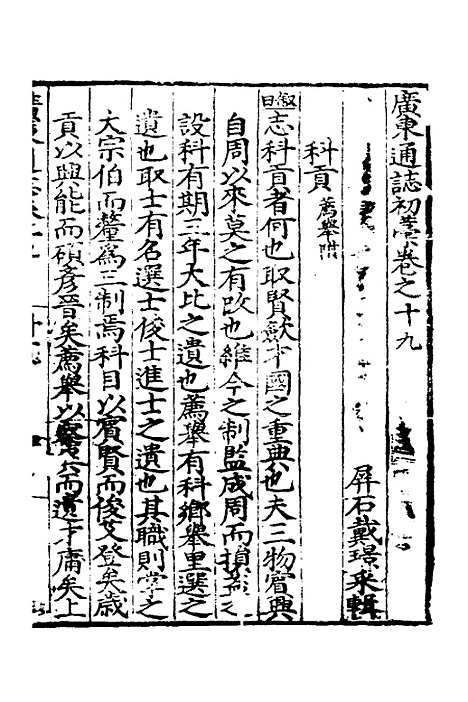 廣東通誌初藁卷之十九
屏石戴璟采輯
科貢 薦舉附
叙曰志科貢者何也取賢歛才國之重典也夫三物賔興
自周以來莫之有改也維今之制監成周而損益之
設科有期三年大比之遺也薦舉有科鄉舉里選之
遺也取士有名選士俊士進士之遺也其職則掌之
大宗伯而釐爲三制焉科目以賔賢而俊乂登矣歳
貢以興能而碩彥晉矣薦舉以而遺才庸矣上